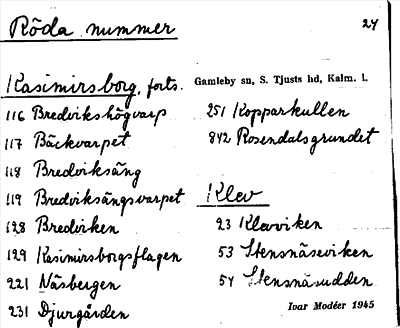 Röda nummer
24
Kasimirsborg, forts.
Gamleby sn, S. Tjusts hd, Kalm. l.
116 Bredvikshögvarp
117 Bäckvarpet
118 Bredviksäng
119 Bredviksängsvarpet
128 Bredviken
129 Kasimirsborgsflagen
221 Näsbergen
231 Djurgården
251 Kopparkullen
842 Rosendalsgrundet
Klev
23 Klevviken
53 Stensnäseviken
54 Stensnäsudden
Ivar Modéer 1945